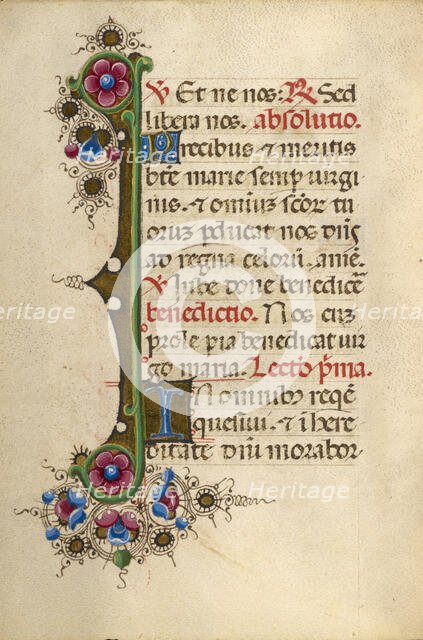 ℣ Et ne nos: ℟ Sed
libera nos. absolutio.
Precibus & meritis
bt̄e marie semp̄ uirgi
nis. & omniū scōr̄ tu
oruȝ ꝑducat nos dn̄s
ad regna celorū. amē.
℣ Iube dōne benedicē
benedictio. Nos cuȝ
prole pia benedicat uir
go maria. Lectio p̄ma.
IN omnibȝ reqē
quesiui. & ī here
ditate dn̄i morabor-
Heritage
Heritage
Heritage
Heritage
Heritage
Heritage